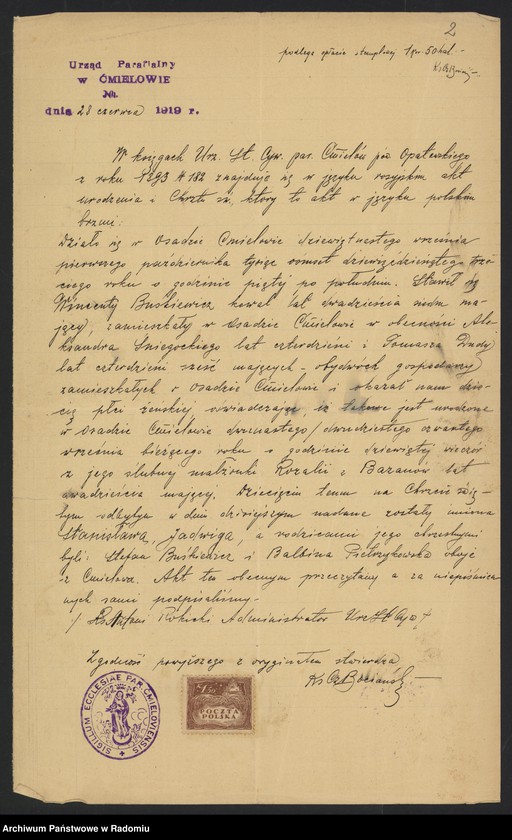 2
podlega opłacie stemplowej 1 kor. 50 hal. –
Urząd Parafialny
w ĆMIELOWIE
№
dnia 28 czerwca 1919 r.
W księgach Urz. St. Cyw. par. Ćmielów pow. Opatowskiego
z roku 1893 № 182 znajduje się w języku rosyjskim akt
urodzenia i Chrztu św., który to akt w języku polskim
brzmi:
Działo się w Osadzie Ćmielowie dziewiętnastego września
pierwszego października tysiąc osiemset dziewięćdziesiątego trze-
ciego roku o godzinie piątej po południu. Stawił się
Wincenty Buśkiewicz kowal lat dwadzieścia siedm ma-
jący, zamieszkały w Osadzie Ćmielowie w obecności Ale-
ksandra Śniegockiego lat czterdzieści i Tomasza Dudy
lat czterdzieści sześć mających – obydwóch gospodarzy
zamieszkałych w Osadzie Ćmielowie i okazał nam dzie-
cię płci żeńskiej, oświadczając, iż takowe jest urodzone
w Osadzie Ćmielowie dwunastego / dwudziestego czwartego
września bieżącego roku o godzinie dziewiątej wieczór
z jego ślubnej małżonki Rozalii z Bazanów lat
dwadzieścia mającej. Dziecięciu temu na Chrzcie świę-
tym odbytym w dniu dzisiejszym nadane zostały imiona
Stanisława, Jadwiga, a rodzicami jego chrzestnymi
byli: Stefan Buśkiewicz i Balbina Pietrzykowska oboje
z Ćmielowa. Akt ten obecnym przeczytany a za niepiśmien-
nych sami podpisaliśmy –
/ Ks. Antoni Administrator Urz St Cyw /
Zgodność powyższego z oryginałem stwierdza
Ks
SIGILLUM ECCLESIAE PAR. ĆMIELOVIENSIS
1.50
POCZTA
POLSKA
Archiwum Państwowe w Radomiu